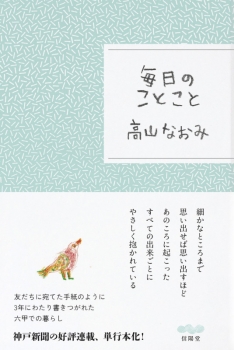 毎日の
ことこと
高山なおみ
細かなところまで
思い出せば思い出すほど
あのころに起こった
すべての出来ごとに
やさしく抱かれている
友だちに宛てた手紙のように
3年にわたり書きつがれた
六甲での暮らし
神戸新聞の好評連載、単行本化!
信陽堂